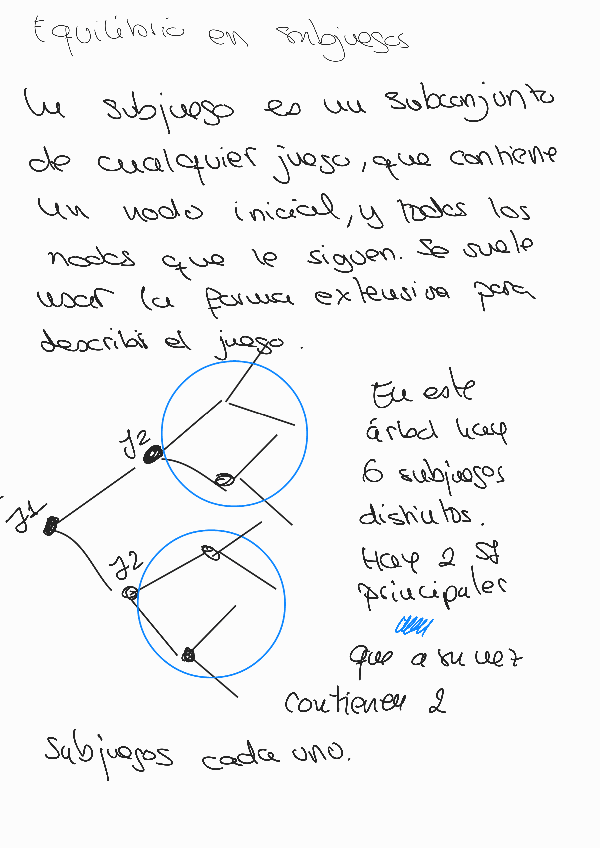 Equilibrio en subjuegos
Un subjuego es un subconjunto
de cualquier juego, que contiene
un nodo inicial, y todos los
nodos que le siguen. Se suele
usar la forma extensiva para
describir el juego.
J2
J1
J2
En este
árbol hay
6 subjuegos
distintos.
Hay 2 SJ
principales
que a su vez
contienen 2
subjuegos cada uno.